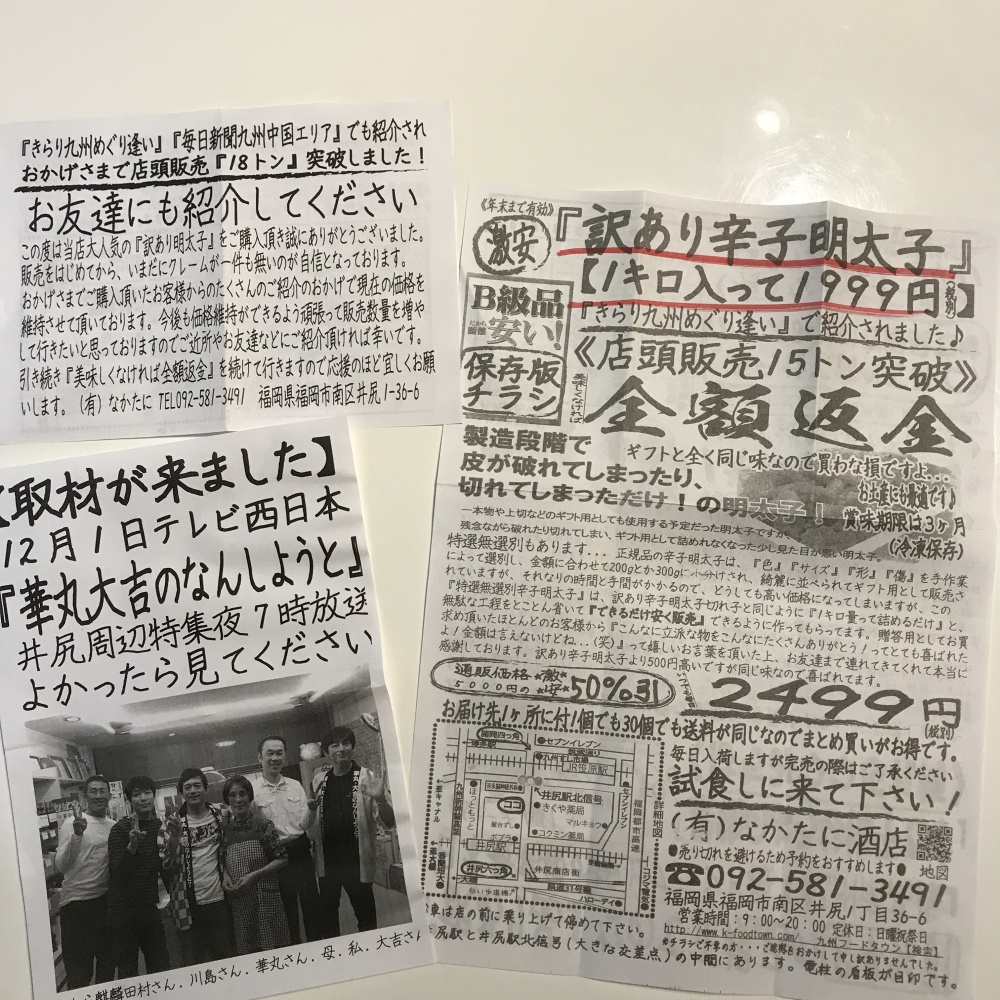 『きらり九州めぐり逢い』『毎日新聞九州中国エリア』でも紹介され
おかげさまで店頭販売『18トン』突破しました!
お友達にも紹介してください
この度は当店大人気の『訳あり明太子』をご購入頂き誠にありがとうございました。
販売をはじめてから、いまだにクレームが一件も無いのが自信となっております。
おかげさまでご購入頂いたお客様からのたくさんのご紹介のおかげで現在の価格を
維持させて頂いております。今後も価格維持ができるよう頑張って販売数量を増や
して行きたいと思っておりますのでご近所やお友達などにご紹介頂ければ幸いです。
引き続き『美味しくなければ全額返金』を続けて行きますので応援のほど宜しくお願
いします。(有)なかたに TEL092-581-3491 福岡県福岡市南区井尻1-36-6
【取材が来ました】
12月1日テレビ西日本
『華丸大吉のなんしようと』
井尻周辺特集夜7時放送
よかったら見てください
麒麟田村さん.川島さん.華丸さん.母.私.大吉さん
《年末まで有効》
激安
『訳あり辛子明太子』
【1キロ入って1999円(税別)】
B級品
だから
安い!
『きらり九州めぐり逢い』で紹介されました♪
保存版
チラシ
《店頭販売15トン突破》
美味しくなければ
全額返金
製造段階で
皮が破れてしまったり、
切れてしまっただけ!の明太子!
ギフトと全く同じ味なので買わな損ですよ...
お土産にも最適です♪
賞味期限は3ヶ月
(冷凍保存)
一本物や上切などのギフト用としても使用する予定だった明太子ですが、
残念ながら破れたり切れてしまい、ギフト用として詰めれなくなった少し見た目が悪い明太子。
特選無選別もあります... 正規品の辛子明太子は、『色』『サイズ』『形』『傷』を手作業
によって選別し、金額に合わせて200gとか300gに小分けされ、綺麗に並べられてギフト用として販売さ
れていますが、それなりの時間と手間がかかるので、どうしても高い価格になってしまいますが、この
『特選無選別辛子明太子』は、訳あり辛子明太子切れ子と同じように『1キロ量って詰めるだけ』と、
無駄な工程をとことん省いて『できるだけ安く販売』できるように作ってもらってます。贈答用としてお買
求め頂いたほとんどのお客様から『こんなに立派な物をこんなにたくさんありがとう!ってとても喜ばれた
よ!金額は言えないけどね...(笑)』って嬉しいお言葉を頂いた上、お友達まで連れてきてくれて本当に
感謝しております。訳あり辛子明太子より500円高いですが同じ味なので喜ばれてます。
通販価格
5000円の
激安
50%引
2499円(税別)
お届け先1ヶ所に付1個でも30個でも送料が同じなのでまとめ買いがお得です。
毎日入荷しますが完売の際はご了承ください
試食しに来て下さい!
(有)なかたに酒店
●売り切れを避けるため予約をおすすめします●
地図
☎092-581-3491
福岡県福岡市南区井尻1丁目36-6
営業時間:9:00~20:00 定休日:日曜祝祭日
http://www.k-foodtown.com/ 九州フードタウン【検索】
諸岡四つ角
セブンイレブン
筑紫通り
九州すし市場
JR笹原駅
井尻駅北信号
きくや薬局
ココ
マルキョウ
コクミン薬局
ほっともっと
屋台ずし
ポプラ
井尻駅
井尻六つ角
井尻商店街
ハローデイ
セブンイレブン
福岡都市高速
詳細地図
コジマ電気
車は店の前に乗り上げて停めて下さい。
井尻駅と井尻駅北信号(大きな交差点)の中間にあります。電柱の看板が目印です。
※チラシご不要の方・・・ご迷惑をおかけして申し訳ありませんでした。